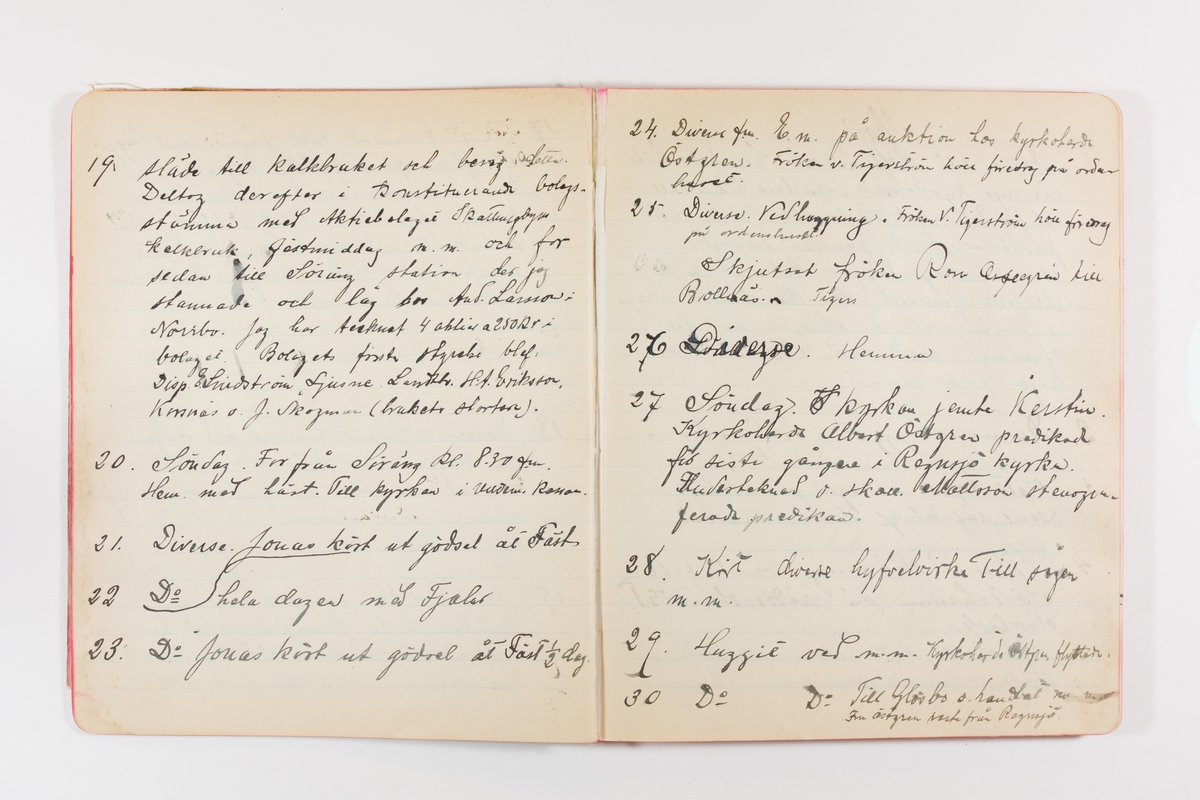 19. släde till kalkbruket och besåg detta.
Deltog derefter i konstituerande bolags-
stämma med Aktiebolaget Skattungbyns
kalkbruk, festmiddag m.m. och for
sedan till Söräng station der jag
stannade och låg hos And. Larsson i
Norrbo. Jag har tecknat 4 aktier a 250 kr i
bolaget. Bolagets första styrelse blef:
Disp E Lindström Ljusne. Landtbr. H.A. Eriksson,
o. J. Skogman (brukets startare).
20. Söndag. For från Söräng kl. 8.30 fm.
Hem med häst. Till kyrkan i
21. Diverse. Jonas kört ut gödsel åt Fäst
22 Do hela dagen med Fjäls
23. Do Jonas kört ut gödsel åt Fäst ½ dag.
24. Diverse fm. E.m. på auktion hos kyrkoherde
Östgren. Fröken v. Tigerström höll föredrag på orden-
huset.
25. Diverse. Vedhuggning. Fröken V. Tigerström höll föredrag
på ordenshuset.
Skjutsat fröken Ron till
Bollnäs. Tigers
26 Diverse. Hemma
27 Söndag. I kyrkan jemte Kerstin.
Kyrkoherde Albert Östgren predikade
för sista gången i Regnsjö kyrka.
Undertecknad o. skoll. Mattsson stenogra-
ferade predikan.
28. Kört diverse hyfvelvirke Till sågen
m.m.
29. Huggit ved m.m. Kyrkoherde Östgren flyttade.
30 Do Do Till Glösbo o. handlat m.m.
Fru Östgren reste från Regnsjö.